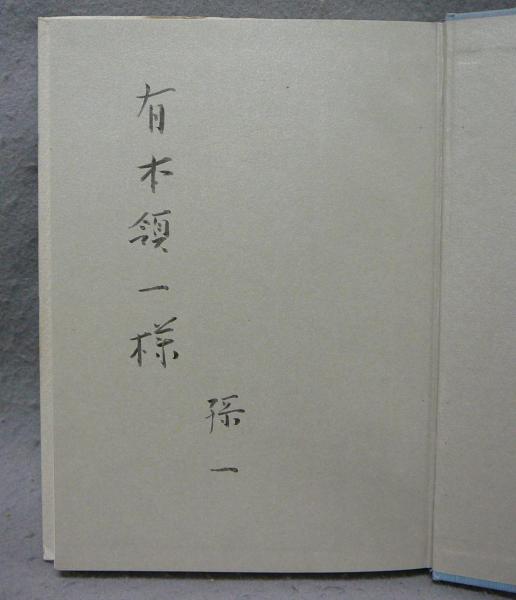 有本領一様
孫一